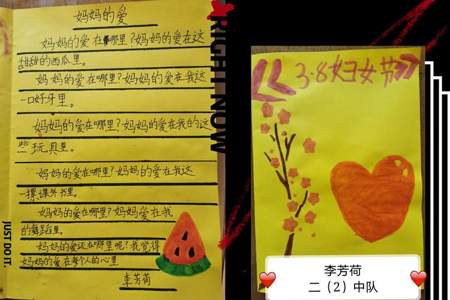 妈妈的爱
妈妈的爱在哪里?妈妈的爱在这
甜甜的西瓜里。
妈妈的爱在哪里?妈妈的爱在我这
一口好牙里。
妈妈的爱在哪里?妈妈的爱在我的这
些玩具里。
妈妈的爱在哪里?妈妈的爱在我这
一摞课外书里。
妈妈的爱在哪里?妈妈爱在我
的舞蹈里。
妈妈的爱还在哪里呢?我觉得
妈妈的爱在每个人的心里
李芳荷
JUST DO IT.
RIGHT NOW
3·8妇女节
李芳荷
二（2）中队